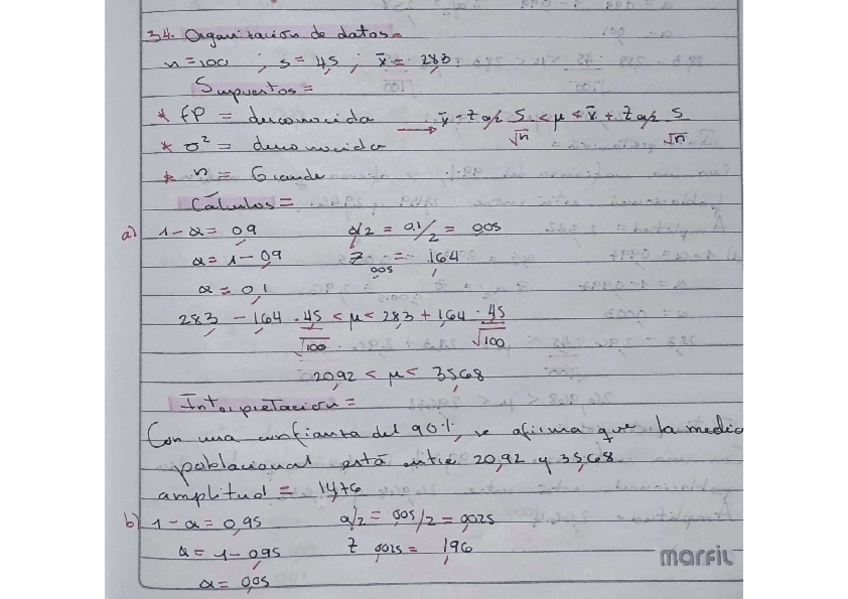 34. Organización de datos=
n=100 ; s=4,5 ; x̄= 28,3
Supuestos=
* FP = desconocida → x̄ - Z α/2 S/√n < μ < x̄ + Z α/2 S/√n
* σ² = desconocida
* n = Grande
Cálculos=
a) 1-α= 0,9 α/2 = 0,1/2 = 0,05
α= 1-0,9 Z 0,05 = 1,64
α = 0,1
28,3 - 1,64 · 4,5/√100 < μ < 28,3 + 1,64 · 4,5/√100
20,92 < μ < 35,68
Interpretación=
Con una confianza del 90%, se afirma que la media
poblacional está entre 20,92 y 35,68
amplitud = 14,76
b) 1-α = 0,95 α/2 = 0,05/2 = 0,025
α = 1-0,95 Z 0,025 = 1,96
α = 0,05
marfil